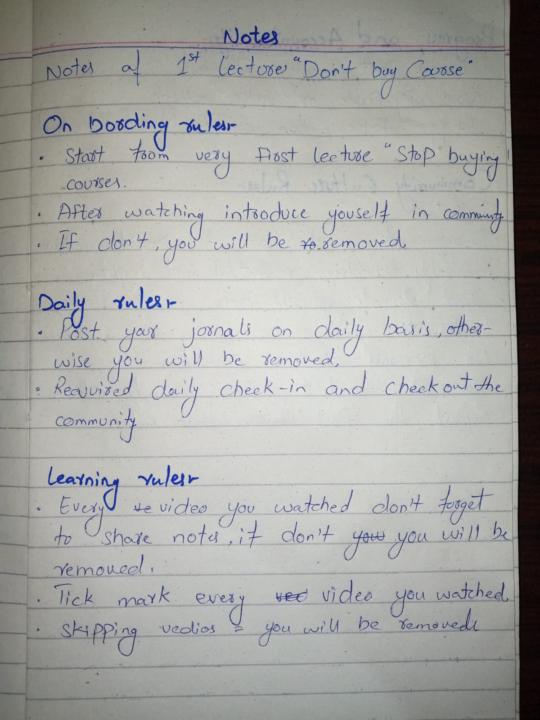 Notes
Notes of 1st lecture "Don't buy Course"
On bording rules-
• Start from very first lecture "Stop buying
courses.
• After watching introduce youself in community
• If don't, you will be removed
Daily rules-
• Post your jornals on daily basis, other-
wise you will be removed.
• Reqvired daily check-in and check out the
community
Learning rules-
• Every video you watched don't forget
to share notes, if don't you you will be
removed.
• Tick mark every video you watched
• skipping vedios = you will be removed